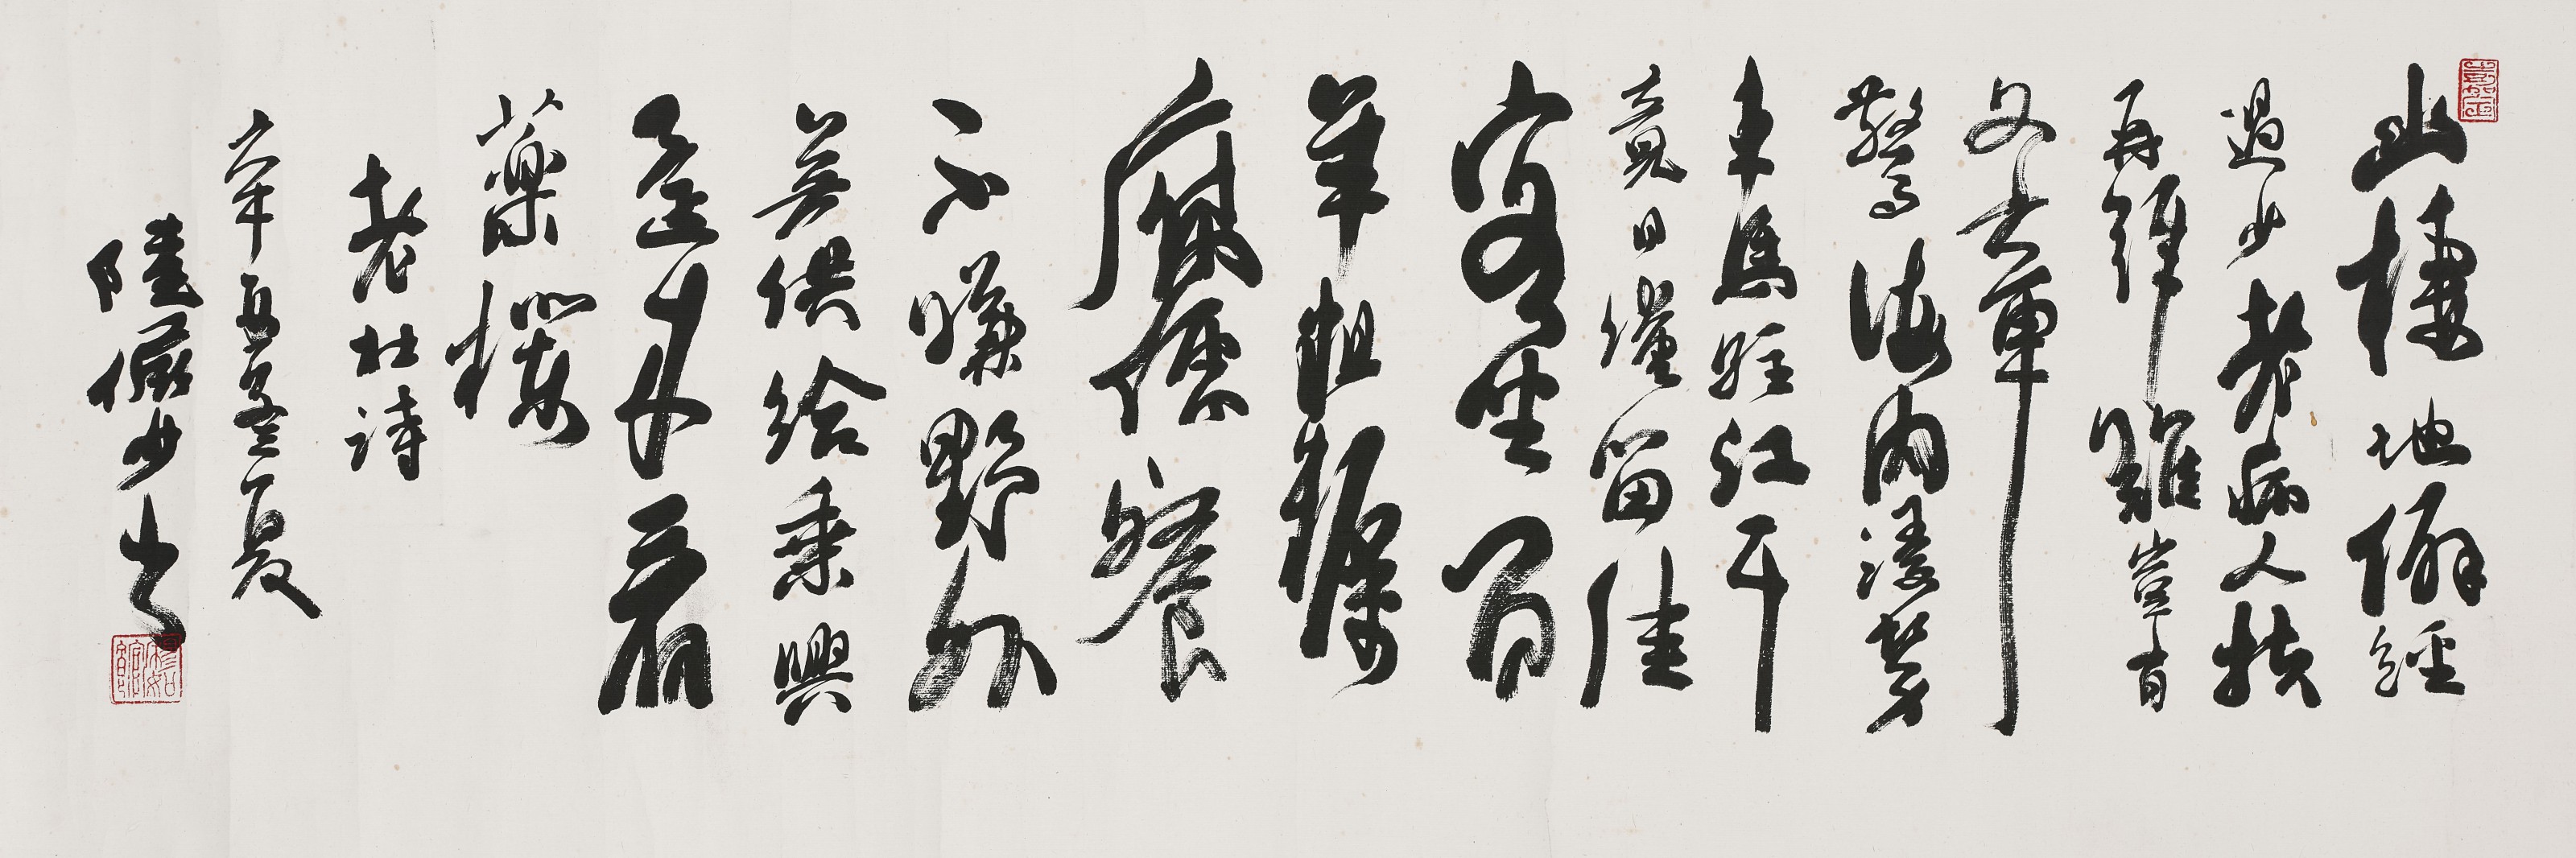 幽棲地僻經
過少老病人扶
再拜難豈有
文章
驚海內漫勞
車馬駐江干
竟日淹留佳
客坐百
年粗糲
腐儒餐
不嫌野外
無供給乘興
還來看
藥欄
老杜詩
辛酉孟夏
陸儼少書
嘉定
穆如館